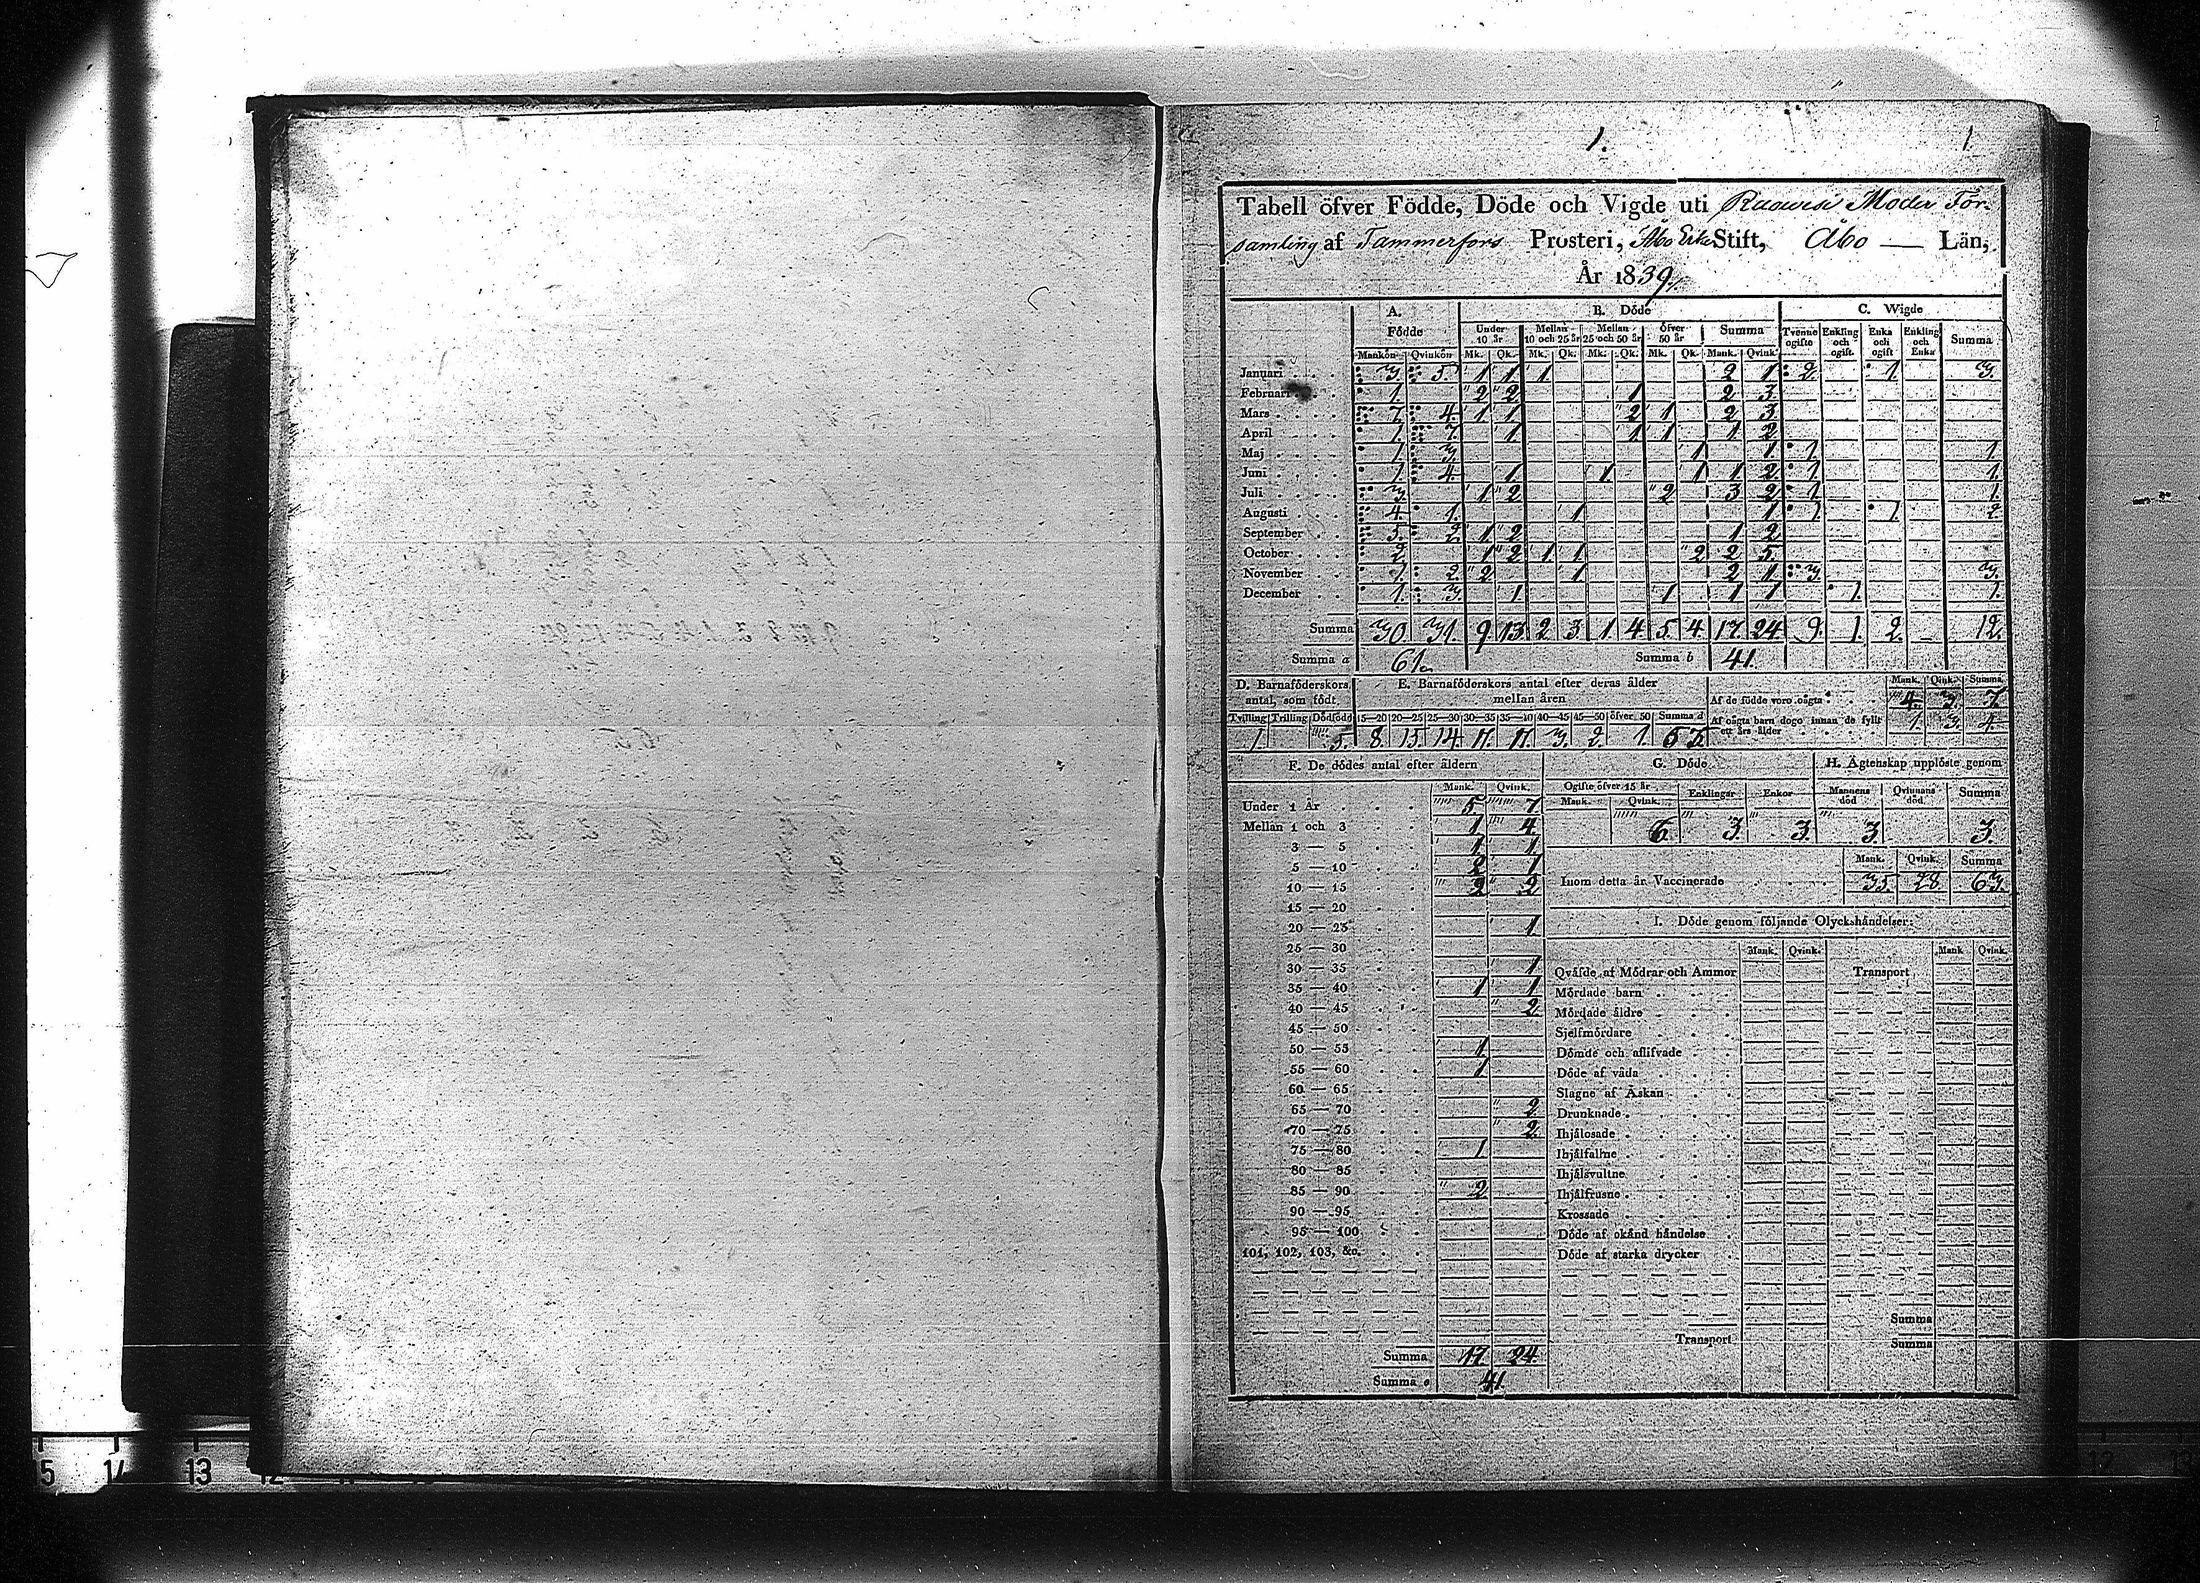 1. 1
Tabell öfver Födde, Döde och Vigde uti Ruowesi Moder För-
samling af Tammerfors Prosteri, Åbo Erke Stift, Åbo — Län,
År 1839.
A. B. Döde C. Wigde
Födde Under 10 år Mellan 10 och 25 år Mellan 25 och 50 år öfver 50 år Summa Tvenne ogifte Enkling och ogift Enka och ogift Enkling och Enka Summa
Mankön Qvinkön Mk. Qk. Mk. Qk. Mk. Qk. Mk. Qk. Mank. Qvink.
Januari 3. 5. 1 1 1. 2 1 2. 1. 3.
Februari 1. 2 2 1 2 3
Mars 7. 4. 1 1 2 1 2 3
April 1. 7. 1 1 1 1 2
Maj 1. 3. 1 1 1. 1.
Juni 1 4. 1 1 1 1 2 1. 1.
Juli 3 1 2 2 3 2 1 1
Augusti 4. 1. 1 1 1. 1. 2
September 5. 2. 1 2 1 2
October 2. 1 2 1. 1. 2 2 5.
November 1. 2. 2 1 2 1 3. 3.
December 1. 3. 1 1 1 1 1. 1.
Summa 30 31. 9 13. 2. 3. 1. 4. 5. 4. 17. 24. 9. 1. 2. – 12.
Summa a 61. Summa b 41.
D. Barnaföderskors antal, som födt E. Barnaföderskors antal efter deras ålder mellan åren Mank. Qink. Summa
Af de födde voro oägta 4. 3. 7.
Tvilling Trilling Dödfödd 15—20 20—25 25—30 30—35 35—40 40—45 45—50 öfver 50 Summa d Af oägta barn dogo innan de fyllt ett års ålder 1. 3. 4.
1. 5. 8. 15. 14. 11. 11. 3. 2. 1. 65.
F. De dödes antal efter åldern G. Döde H. Ägtenskap upplöste genom
Mank. Qvink. Ogifte öfver 15 år Mank. Qvink. Enklingar Enkor Mannens död Qvinnans död Summa
Under 1 År 5. 7.
Mellan 1 och 3 1 4. 6. 3. 3. 3 3.
3 — 5 1. 1.
5 — 10 2 1 Mank. Qvink. Summa
10 — 15 2 2 Inom detta år Vaccinerade 35. 28. 63.
15 — 20
20 — 25 1. I. Döde genom följande Olyckshändelser:
25 — 30 Mank. Qvink. Mank Qvink.
30 — 35 1 Qväfde af Mödrar och Ammor Transport
35 — 40 1 1 Mördade barn
40 — 45 2 Mördade äldre
45 — 50 Sjelfmördare
50 — 55 1. Dömde och aflifvade
55 — 60 1 Döde af våda
60 — 65 Slagne af Åskan
65 — 70 2. Drunknade
70 — 75 2. Ihjälosade
75 — 80 1. Ihjälfallne
80 — 85 Ihjälsvultne
85 — 90 2 Ihjälfrusne
90 — 95 Krossade
95 — 100 Döde af okänd händelse
101, 102, 103, &c. Döde af starka drycker
Summa
Transport Summa
Summa 17. 24.
Summa e 41.
15 14 13 12 12 13